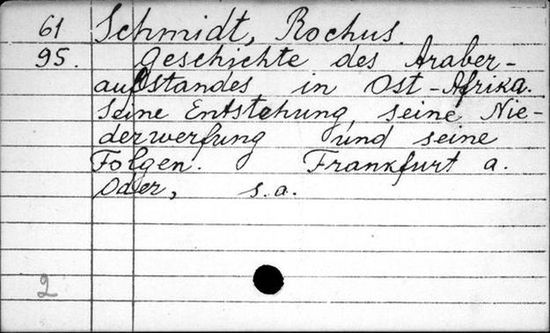 61 Schmidt, Rochus.
95. Geschichte des Araber-
aufstandes in Ost-Afrika.
Seine Entstehung, seine Nie-
derwerfung und seine
Folgen. Frankfurt a.
Oder, s.a.
2